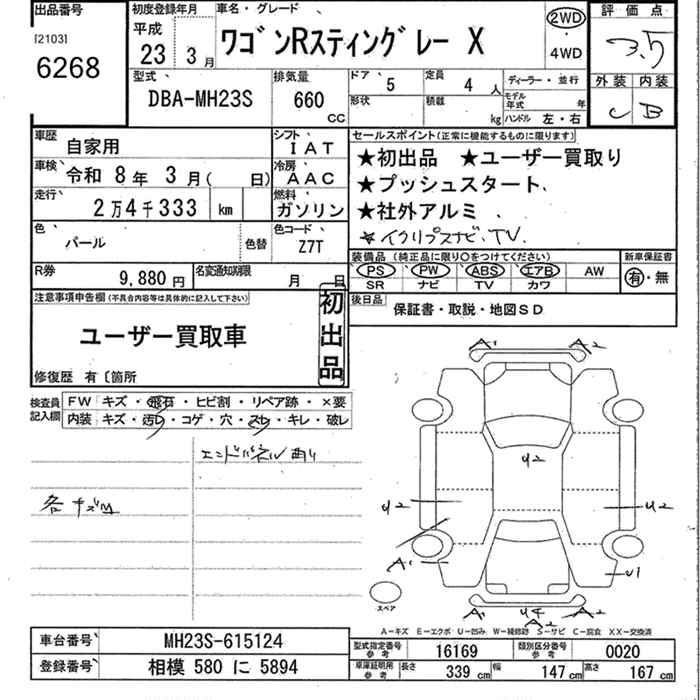 出品番号
[2103]
6268
初度登録年月
平成
23 3月
車名・グレード
ワゴンRスティングレー X
2WD
・
4WD
評価点
3.5
型式
DBA-MH23S
排気量
660
CC
ドア 5
定員 4人
形状
積載 kg
ディーラー・並行
モデル年式 年
ハンドル 左・右
外装 内装
C B
車歴 自家用
シフト IAT
車検 令和 8年 3月( 日)
冷房 AAC
走行 2万4千333 km
燃料 ガソリン
色 パール
色替
色コード Z7T
R券 9,880円
名変通知期限 月 日
セールスポイント(正常に機能するものに限ります)
★初出品 ★ユーザー買取り
★プッシュスタート
★社外アルミ
★イクリプスナビ、TV
装備品 (純正品に限り○をつけてください)
PS PW ABS エアB AW
SR ナビ TV カワ
新車保証書
有・無
後日品
保証書・取説・地図SD
注意事項申告欄(不具合内容等は具体的に記入して下さい)
ユーザー買取車
初出品
修復歴 有〔箇所
検査員記入欄
FW キズ・飛石・ヒビ割・リペア跡・×要
内装 キズ・汚れ・コゲ・穴・スレ・キレ・破レ
エンドパネル凹り
各キズ凹
A1 A2
U2
U2 U2
A1 U1
A1 U4 A2
A2
スペア
A−キズ E−エクボ U−凹み W−補修跡 S−サビ C−腐食 XX−交換済
車台番号 MH23S-615124
登録番号 相模 580 に 5894
型式指定番号 参考 16169
類別区分番号 参考 0020
車庫証明用 参考 長さ 339 cm 幅 147 cm 高さ 167 cm